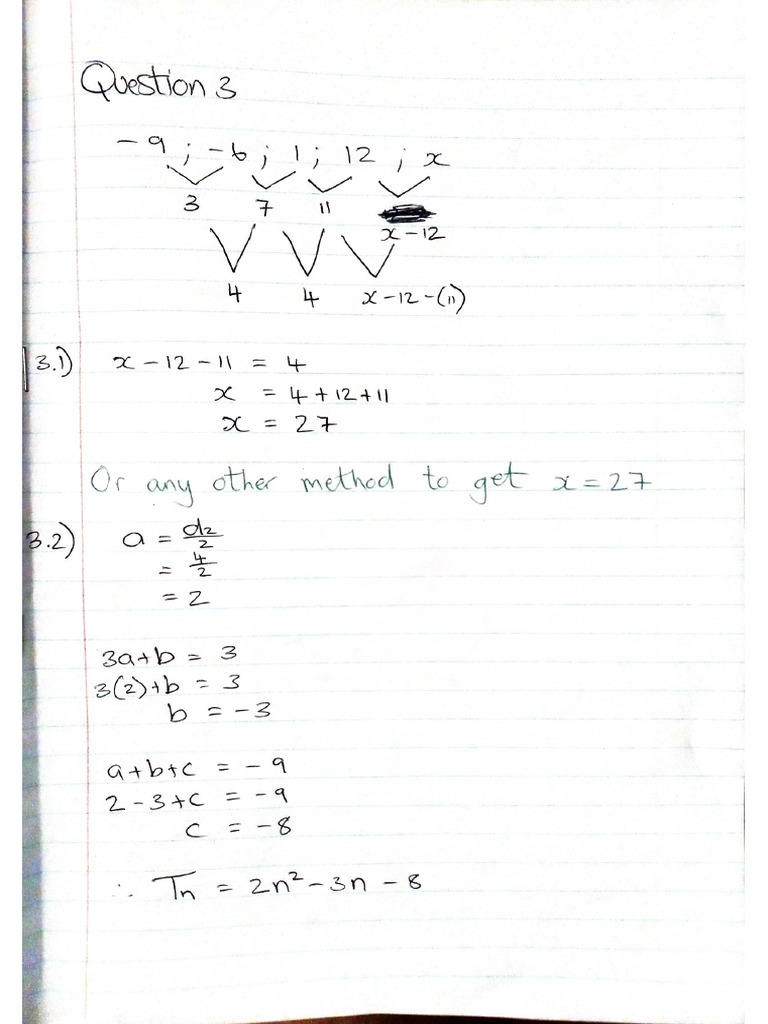 Question 3
-9 ; -6 ; 1 ; 12 ; x
3 7 11
x-12
4 4 x-12-(11)
3.1) x-12-11 = 4
x = 4+12+11
x = 27
Or any other method to get x=27
3.2) a = d2/2
= 4/2
= 2
3a+b = 3
3(2)+b = 3
b = -3
a+b+c = -9
2-3+c = -9
c = -8
∴ Tn = 2n²-3n-8